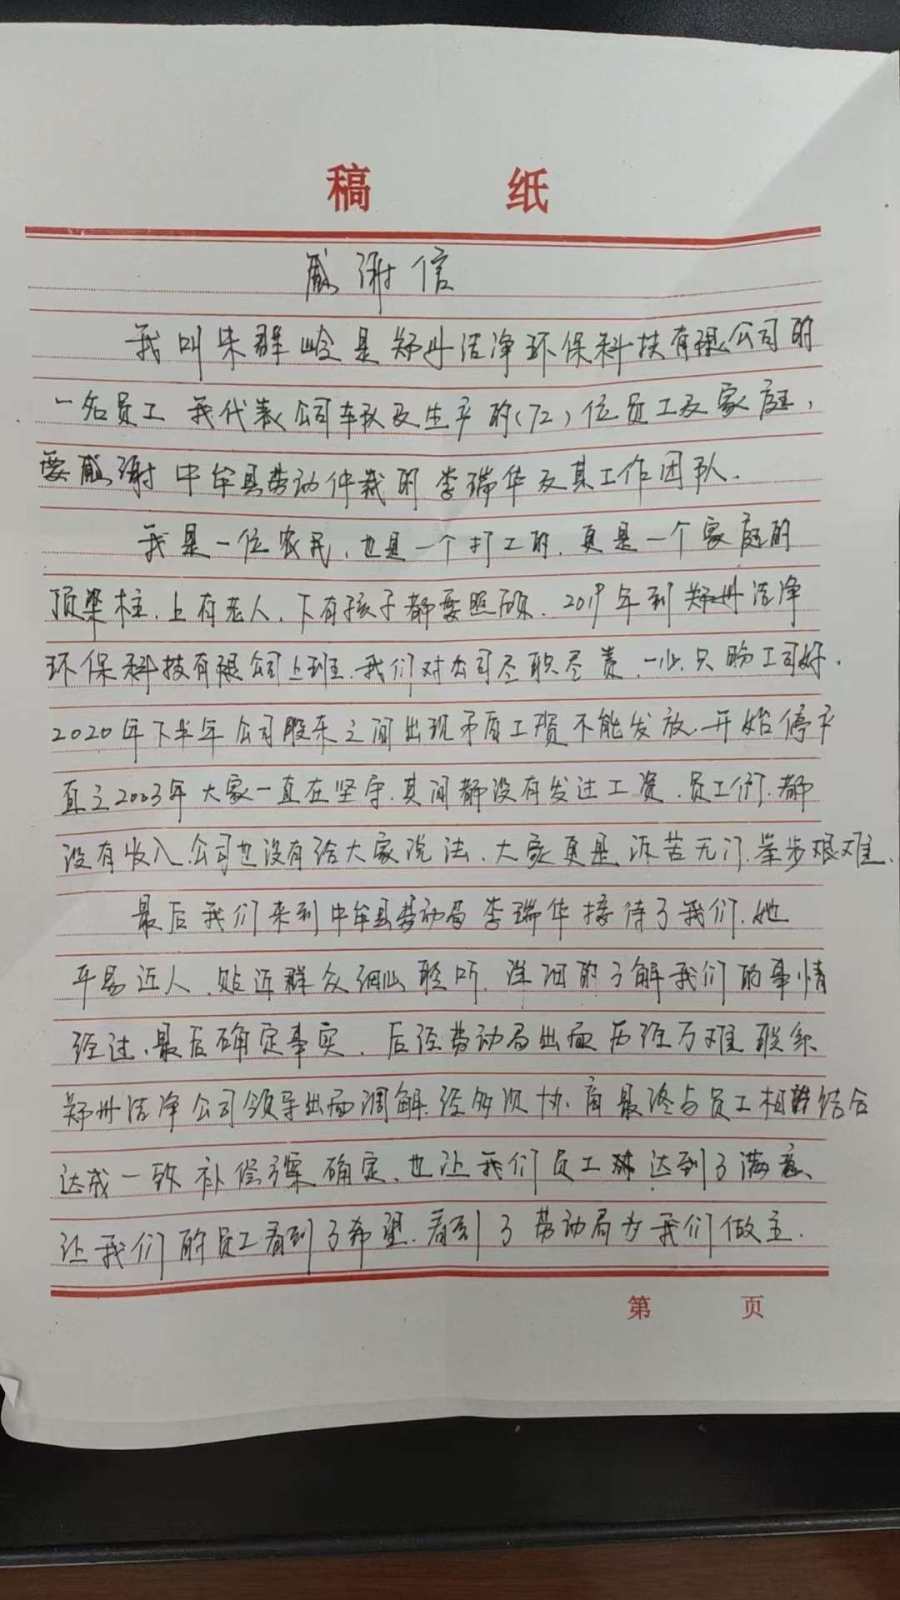 稿 纸
感谢信
我叫朱群岭是郑州洁净环保科技有限公司的
一名员工 我代表公司车队及生产的(72)位员工及家庭,
要感谢中牟县劳动仲裁的李瑞华及其工作团队.
我是一位农民,也是一个打工的,更是一个家庭的
顶梁柱,上有老人,下有孩子都要照顾.2019年到郑州洁净
环保科技有限公司上班.我们对公司尽职尽责,一心只盼公司好.
2020年下半年公司股东之间出现矛盾工资不能发放.开始停产
直至2023年大家一直在坚守.其间都没有发过工资.员工们.都
没有收入.公司也没有给大家说法.大家更是诉苦无门.举步艰难.
最后我们来到中牟县劳动局李瑞华接待了我们.她
平易近人.贴近群众细心聆听.详细的了解我们的事情
经过.最后确定事实.后经劳动局出面历经万难联系
郑州洁净公司领导出面调解.经多次协.商最终与员工相结合
达成一致补偿方案确定.也让我们员工达到了满意.
让我们的员工看到了希望.看到了劳动局为我们做主.
第 页